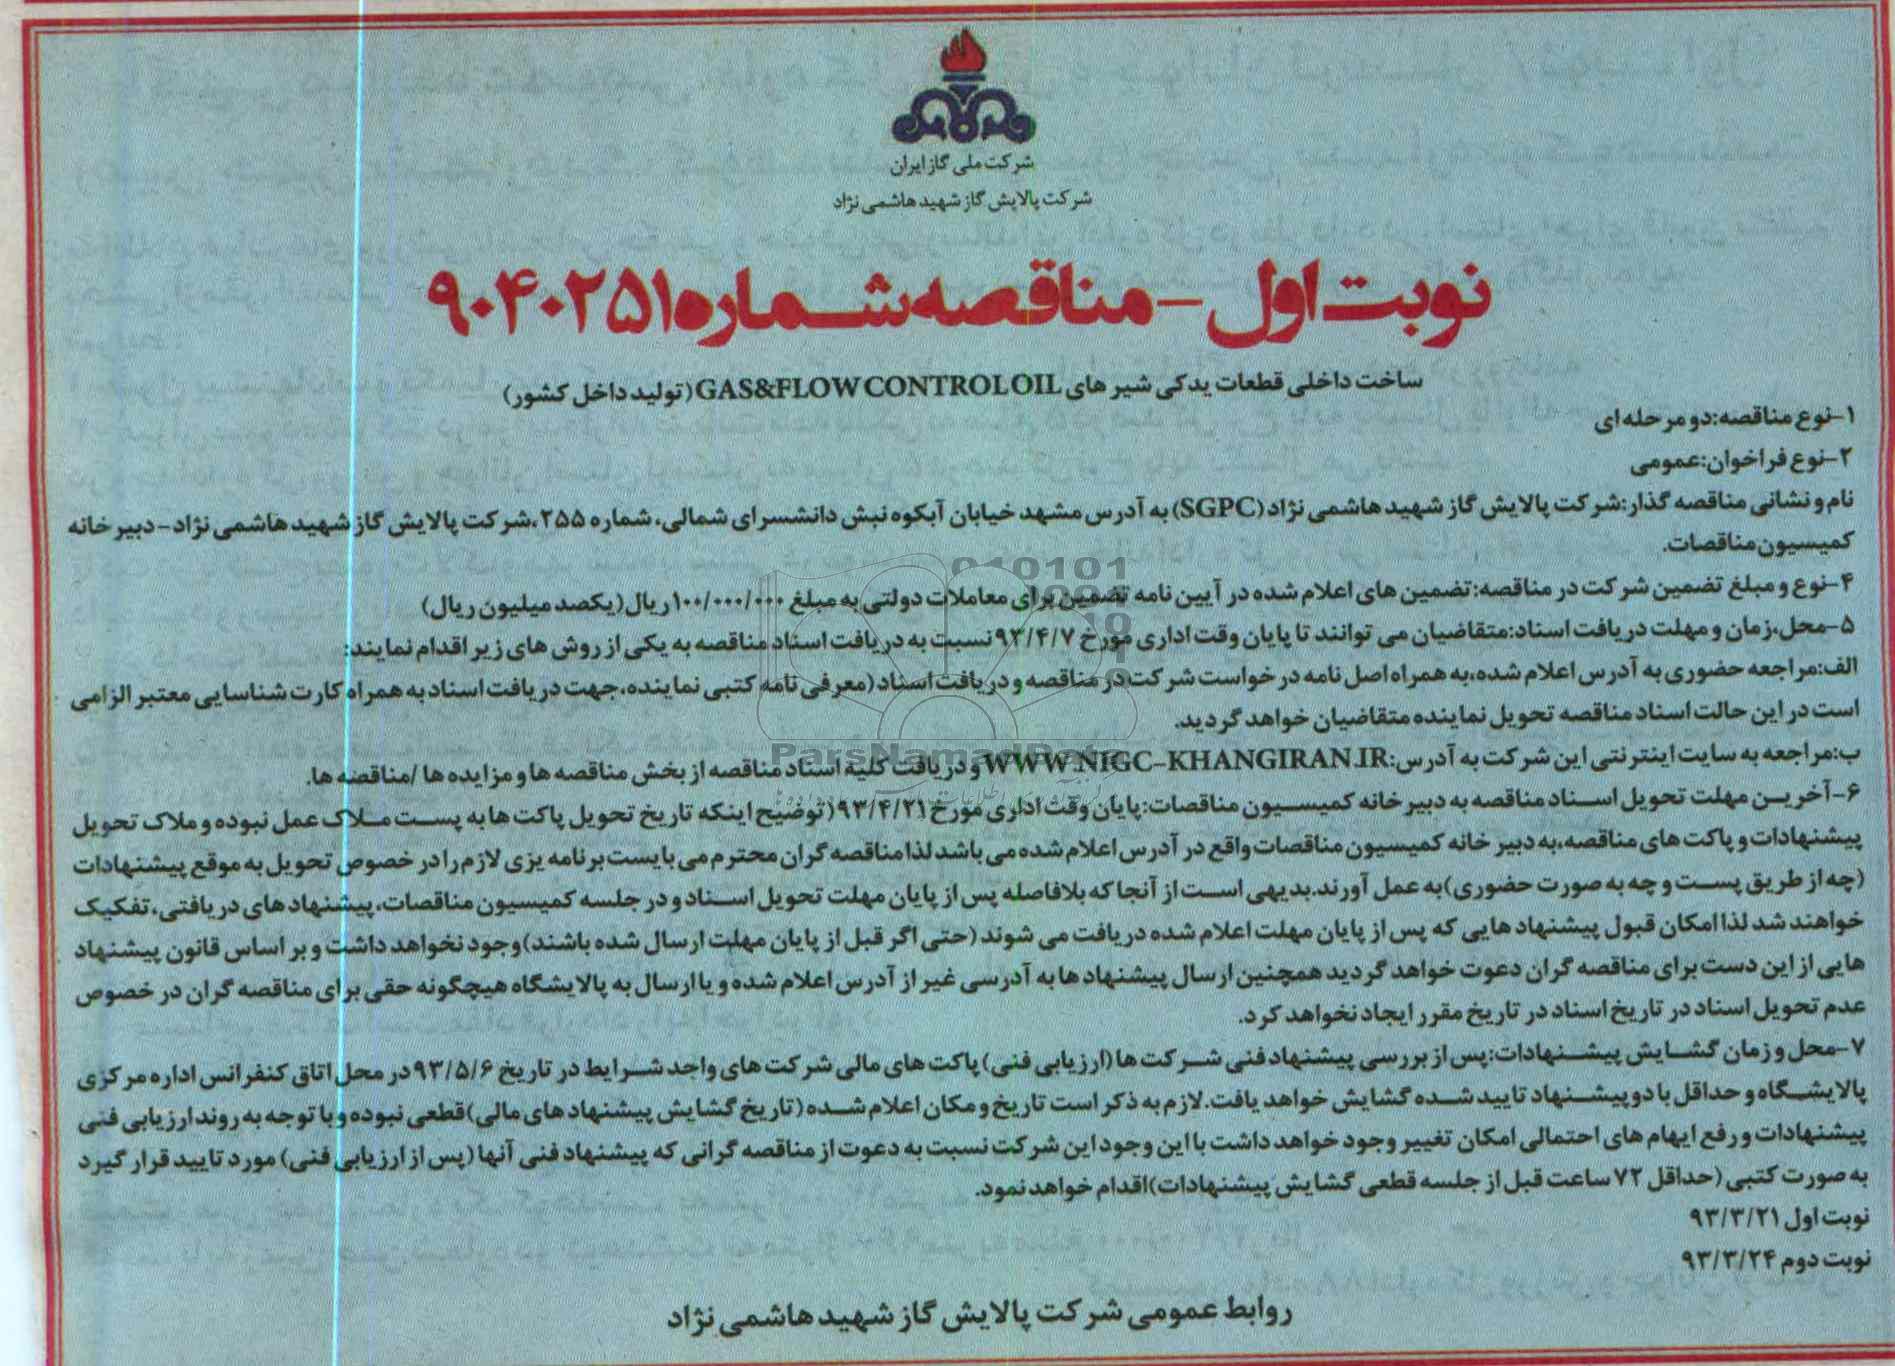 شرکت ملی گاز ایران
شرکت پالایش گاز شهید هاشمی نژاد
نوبت اول - مناقصه شماره ۹۰۴۰۲۵۱
ساخت داخلی قطعات یدکی شیر های GAS&FLOW CONTROL OIL (تولید داخل کشور)
۱-نوع مناقصه:دو مرحله ای
۲-نوع فراخوان:عمومی
نام و نشانی مناقصه گذار:شرکت پالایش گاز شهید هاشمی نژاد (SGPC) به آدرس مشهد خیابان آبکوه نبش دانشسرای شمالی، شماره ۲۵۵،شرکت پالایش گاز شهید هاشمی نژاد-دبیر خانه
کمیسیون مناقصات.
۴-نوع و مبلغ تضمین شرکت در مناقصه:تضمین های اعلام شده در آیین نامه تضمین برای معاملات دولتی به مبلغ ۱۰۰/۰۰۰/۰۰۰ ریال(یکصد میلیون ریال)
۵-محل،زمان و مهلت دریافت اسناد:متقاضیان می توانند تا پایان وقت اداری مورخ ۹۳/۴/۷ نسبت به دریافت اسناد مناقصه به یکی از روش های زیر اقدام نمایند:
الف:مراجعه حضوری به آدرس اعلام شده،به همراه اصل نامه درخواست شرکت در مناقصه و دریافت اسناد (معرفی نامه کتبی نماینده،جهت دریافت اسناد به همراه کارت شناسایی معتبر الزامی
است در این حالت اسناد مناقصه تحویل نماینده متقاضیان خواهد گردید.
ب:مراجعه به سایت اینترنتی این شرکت به آدرس:WWW.NIGC-KHANGIRAN.IR و دریافت کلیه اسناد مناقصه از بخش مناقصه ها و مزایده ها /مناقصه ها.
۶-آخرین مهلت تحویل اسناد مناقصه به دبیر خانه کمیسیون مناقصات:پایان وقت اداری مورخ ۹۳/۴/۲۱(توضیح اینکه تاریخ تحویل پاکت ها به پست ملاک عمل نبوده و ملاک تحویل
پیشنهادات و پاکت های مناقصه،به دبیر خانه کمیسیون مناقصات واقع در آدرس اعلام شده می باشد لذا مناقصه گران محترم می بایست برنامه یزی لازم را در خصوص تحویل به موقع پیشنهادات
(چه از طریق پست و چه به صورت حضوری)به عمل آورند.بدیهی است از آنجا که بلافاصله پس از پایان مهلت تحویل اسناد و در جلسه کمیسیون مناقصات، پیشنهاد های دریافتی، تفکیک
خواهند شد لذا امکان قبول پیشنهاد هایی که پس از پایان مهلت اعلام شده دریافت می شوند (حتی اگر قبل از پایان مهلت ارسال شده باشند)وجود نخواهد داشت و بر اساس قانون پیشنهاد
هایی از این دست برای مناقصه گران دعوت خواهد گردید همچنین ارسال پیشنهاد ها به آدرسی غیر از آدرس اعلام شده و یا ارسال به پالایشگاه هیچگونه حقی برای مناقصه گران در خصوص
عدم تحویل اسناد در تاریخ اسناد در تاریخ مقرر ایجاد نخواهد کرد.
۷-محل و زمان گشایش پیشنهادات:پس از بررسی پیشنهاد فنی شرکت ها (ارزیابی فنی) پاکت های مالی شرکت های واجد شرایط در تاریخ ۹۳/۵/۶ در محل اتاق کنفرانس اداره مرکزی
پالایشگاه و حداقل با دو پیشنهاد تایید شده گشایش خواهد یافت.لازم به ذکر است تاریخ و مکان اعلام شده (تاریخ گشایش پیشنهاد های مالی)قطعی نبوده و با توجه به روند ارزیابی فنی
پیشنهادات و رفع ابهام های احتمالی امکان تغییر وجود خواهد داشت با این وجود این شرکت نسبت به دعوت از مناقصه گرانی که پیشنهاد فنی آنها (پس از ارزیابی فنی) مورد تایید قرار گیرد
به صورت کتبی (حداقل ۷۲ ساعت قبل از جلسه قطعی گشایش پیشنهادات)اقدام خواهد نمود.
نوبت اول ۹۳/۳/۲۱
نوبت دوم ۹۳/۳/۲۴
روابط عمومی شرکت پالایش گاز شهید هاشمی نژاد
ParsNamadData